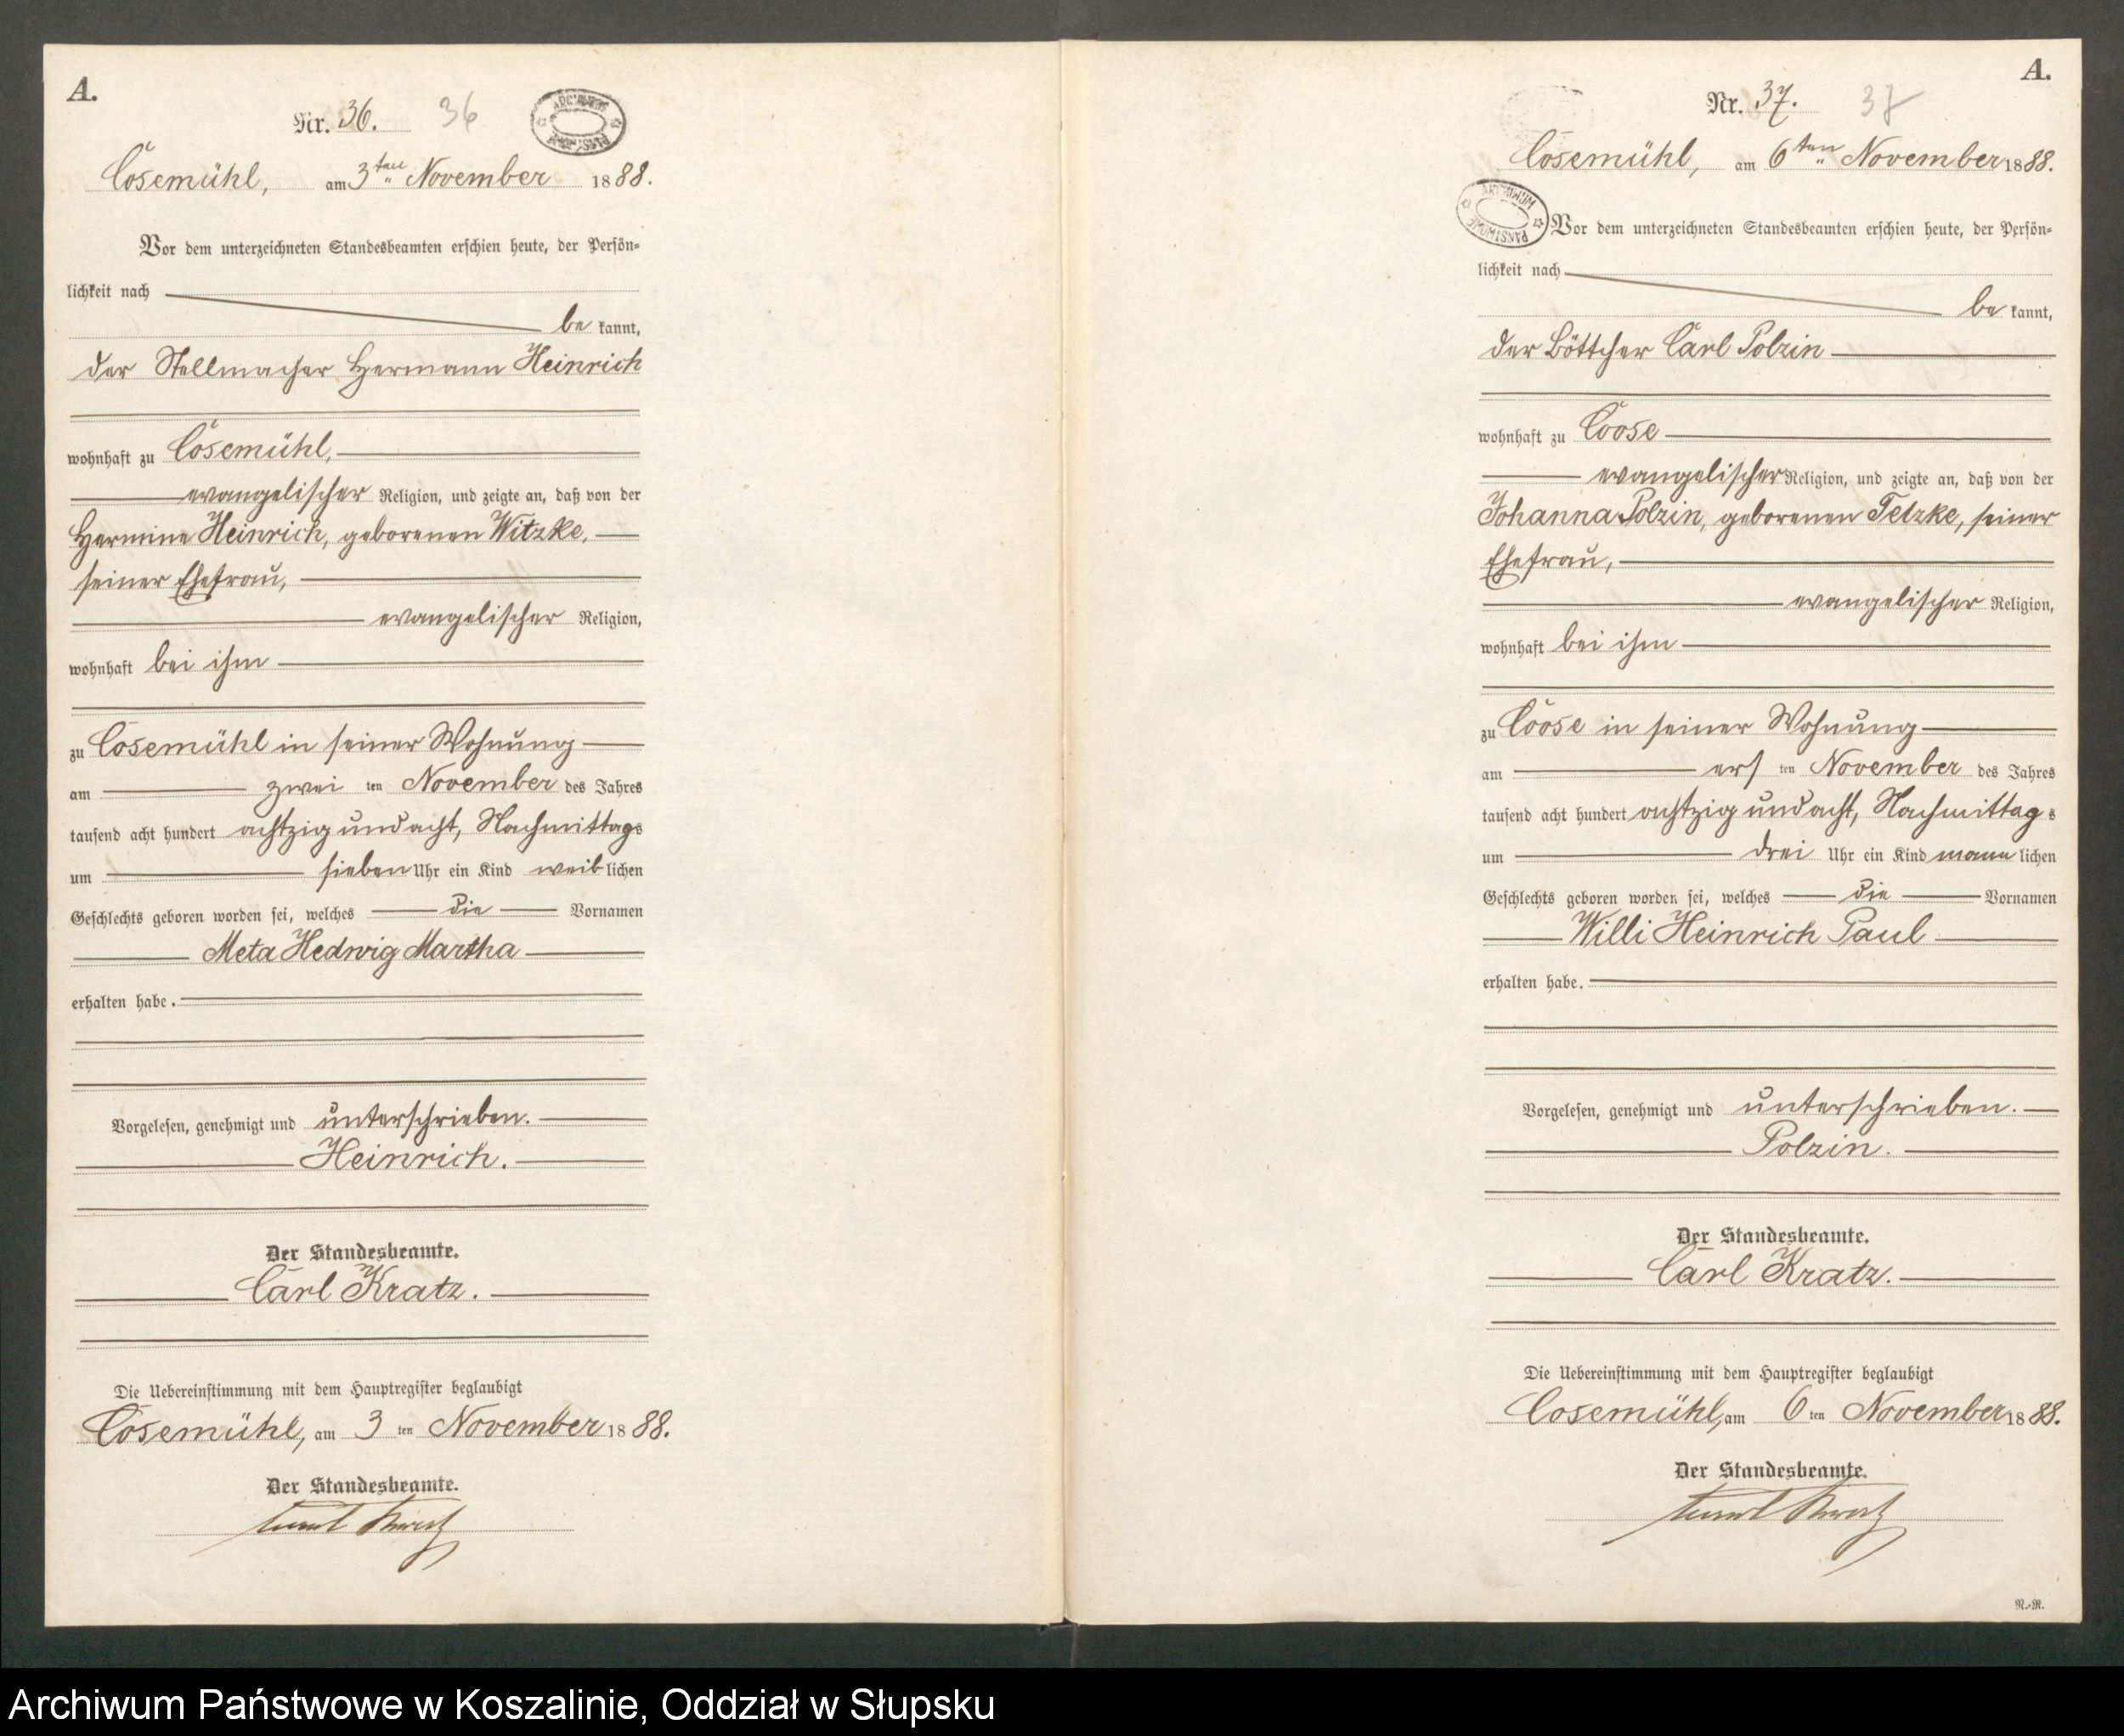 A.
Nr. 36. 36
ARCHIWUM PAŃSTWOWE
Cosemühl, am 3ten November 1888.
Vor dem unterzeichneten Standesbeamten erschien heute, der Persön-
lichkeit nach
be kannt,
der Stellmacher Hermann Heinrich
wohnhaft zu Cosemühl,
evangelischer Religion, und zeigte an, daß von der
Hermine Heinrich, geborenen Witzke,
seiner Ehefrau,
evangelischer Religion,
wohnhaft bei ihm
zu Cosemühl in seiner Wohnung
am zwei ten November des Jahres
tausend acht hundert achtzig und acht, Nachmittags
um sieben Uhr ein Kind weib lichen
Geschlechts geboren worden sei, welches die Vornamen
Meta Hedwig Martha
erhalten habe.
Vorgelesen, genehmigt und unterschrieben.
Heinrich.
Der Standesbeamte.
Carl Kratz.
Die Uebereinstimmung mit dem Hauptregister beglaubigt
Cosemühl, am 3 ten November 1888.
Der Standesbeamte.
A.
Nr. 37. 37
Cosemühl, am 6ten November 1888.
ARCHIWUM PAŃSTWOWE
Vor dem unterzeichneten Standesbeamten erschien heute, der Persön-
lichkeit nach
be kannt,
der Böttcher Carl Polzin
wohnhaft zu Coose
evangelischer Religion, und zeigte an, daß von der
Johanna Polzin, geborenen Tetzke, seiner
Ehefrau,
evangelischer Religion,
wohnhaft bei ihm
zu Coose in seiner Wohnung
am ers ten November des Jahres
tausend acht hundert achtzig und acht, Nachmittag s
um drei Uhr ein Kind männ lichen
Geschlechts geboren worden sei, welches die Vornamen
Willi Heinrich Paul
erhalten habe.
Vorgelesen, genehmigt und unterschrieben.
Polzin.
Der Standesbeamte.
Carl Kratz.
Die Uebereinstimmung mit dem Hauptregister beglaubigt
Cosemühl, am 6 ten November 1888.
Der Standesbeamte.
N.-R.
Archiwum Państwowe w Koszalinie, Oddział w Słupsku